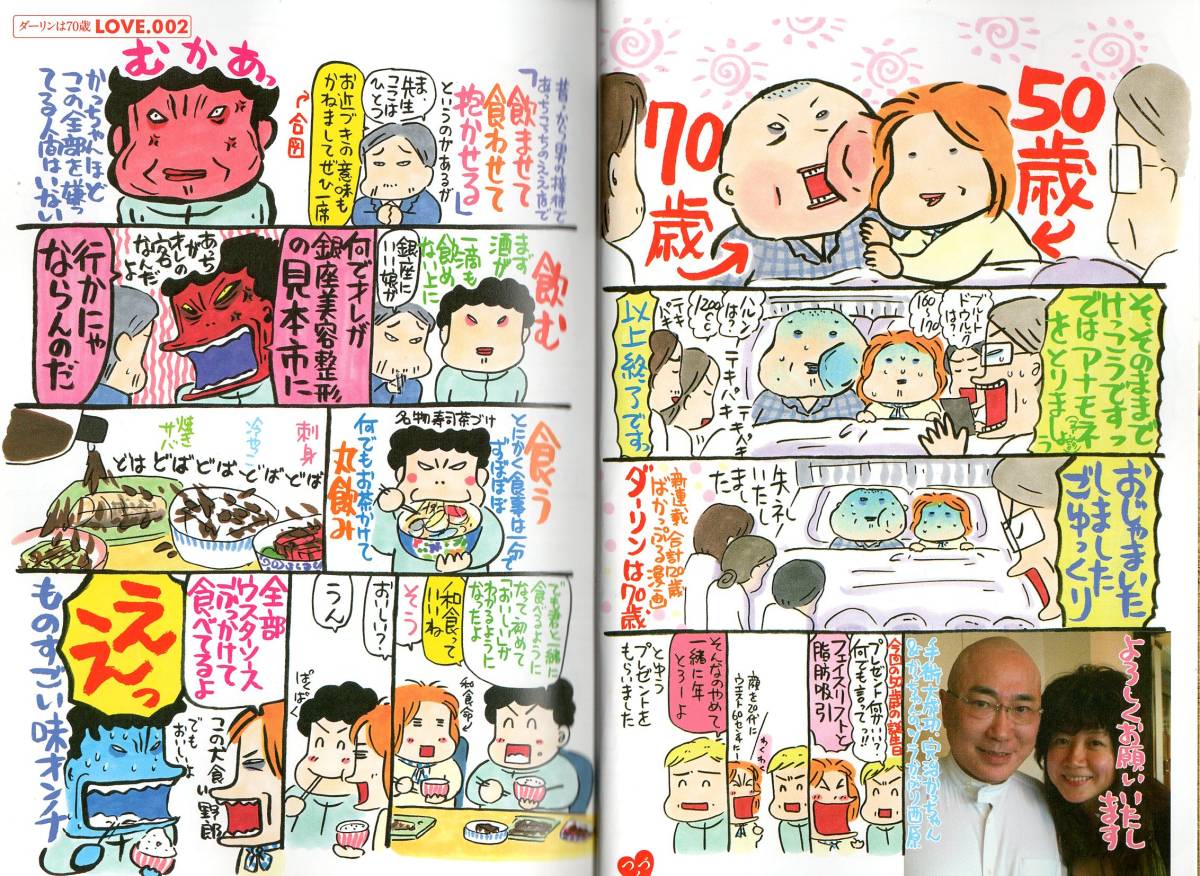 50歳
70歳
そ、そのままで
けっこうですっ
ではアナモネ
をとりましょう
ブルート
ドゥルック
は?
160〜
170
ハルンは?
1200cc
テキパキ
テーキパキ
テーキパキ
以上終了ですっ
おじゃまいた
しました
ごゆっくり
失ネし
いたし
ました
新連載 合計120歳
ばかっぷる漫画
ダーリンは70歳
よろしくお願いいたし
ます
今回の50歳の誕生日
プレゼント何がいい?
何でも言って!!
フェイスリフトと
脂肪吸引
顔を20代に
ウエスト60センチに
わくわく
そんなのやめて
一緒に年
とろーよ
とゆう
プレゼントを
もらいました
つづく
ダーリンは70歳 LOVE.002
昔から男の接待で
あっちこっちのええ店で
「飲ませて
食わせて
抱かせる」
というのがあるが
ま、
先生
ここは
ひとつ
お近づきの意味も
かねましてぜひ一席
合図
むかあっ
かっちゃんほど
この全部を嫌っ
てる人間はいない
飲む
まず
酒が
一滴も
飲め
ない上に
銀座に
いい娘が
何でオレが
銀座美容整形
の見本市に
あっち
がオレの
お客
なんだ
よ
行かにゃ
ならんのだ
食う
とにかく食事は一分で
ずぼぼぼ
名物寿司茶づけ
何でもお茶かけて
丸飲み
刺身
冷ややっこ
焼き
サバ
どばどばどばどばどば
でも君と一緒に
食べるように
なって初めて
「おいしい」が
わかるように
なったよ
和食って
いいね
和食命
そう
おいしい?
うん
ぱくぱく
全部
ウスターソース
ぶっかけて
食べてるよ
この犬食い
野郎
でも
おいしいよ
ええ
えっ
ものすごい味オンチ